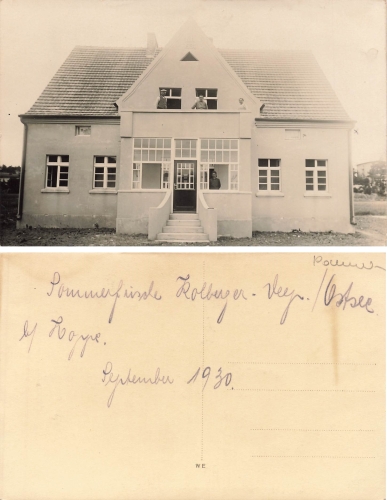 Pommern
Sommerfrische Kolberger-Deep/Ostsee
b/ Hoppe.
September 1930.
NE